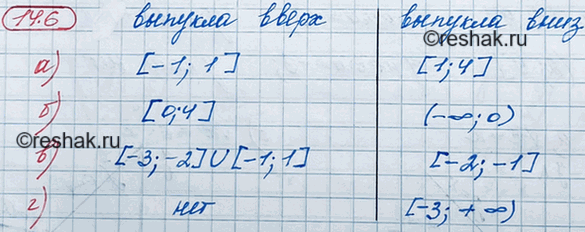 14.6 выпукла вверх выпукла вниз
©reshak.ru
а) [-1; 1] [1; 4]
б) [0; 4] (-∞; 0)
в) [-3; -2] U [-1; 1] [-2; -1]
©reshak.ru
г) нет [-3; +∞)